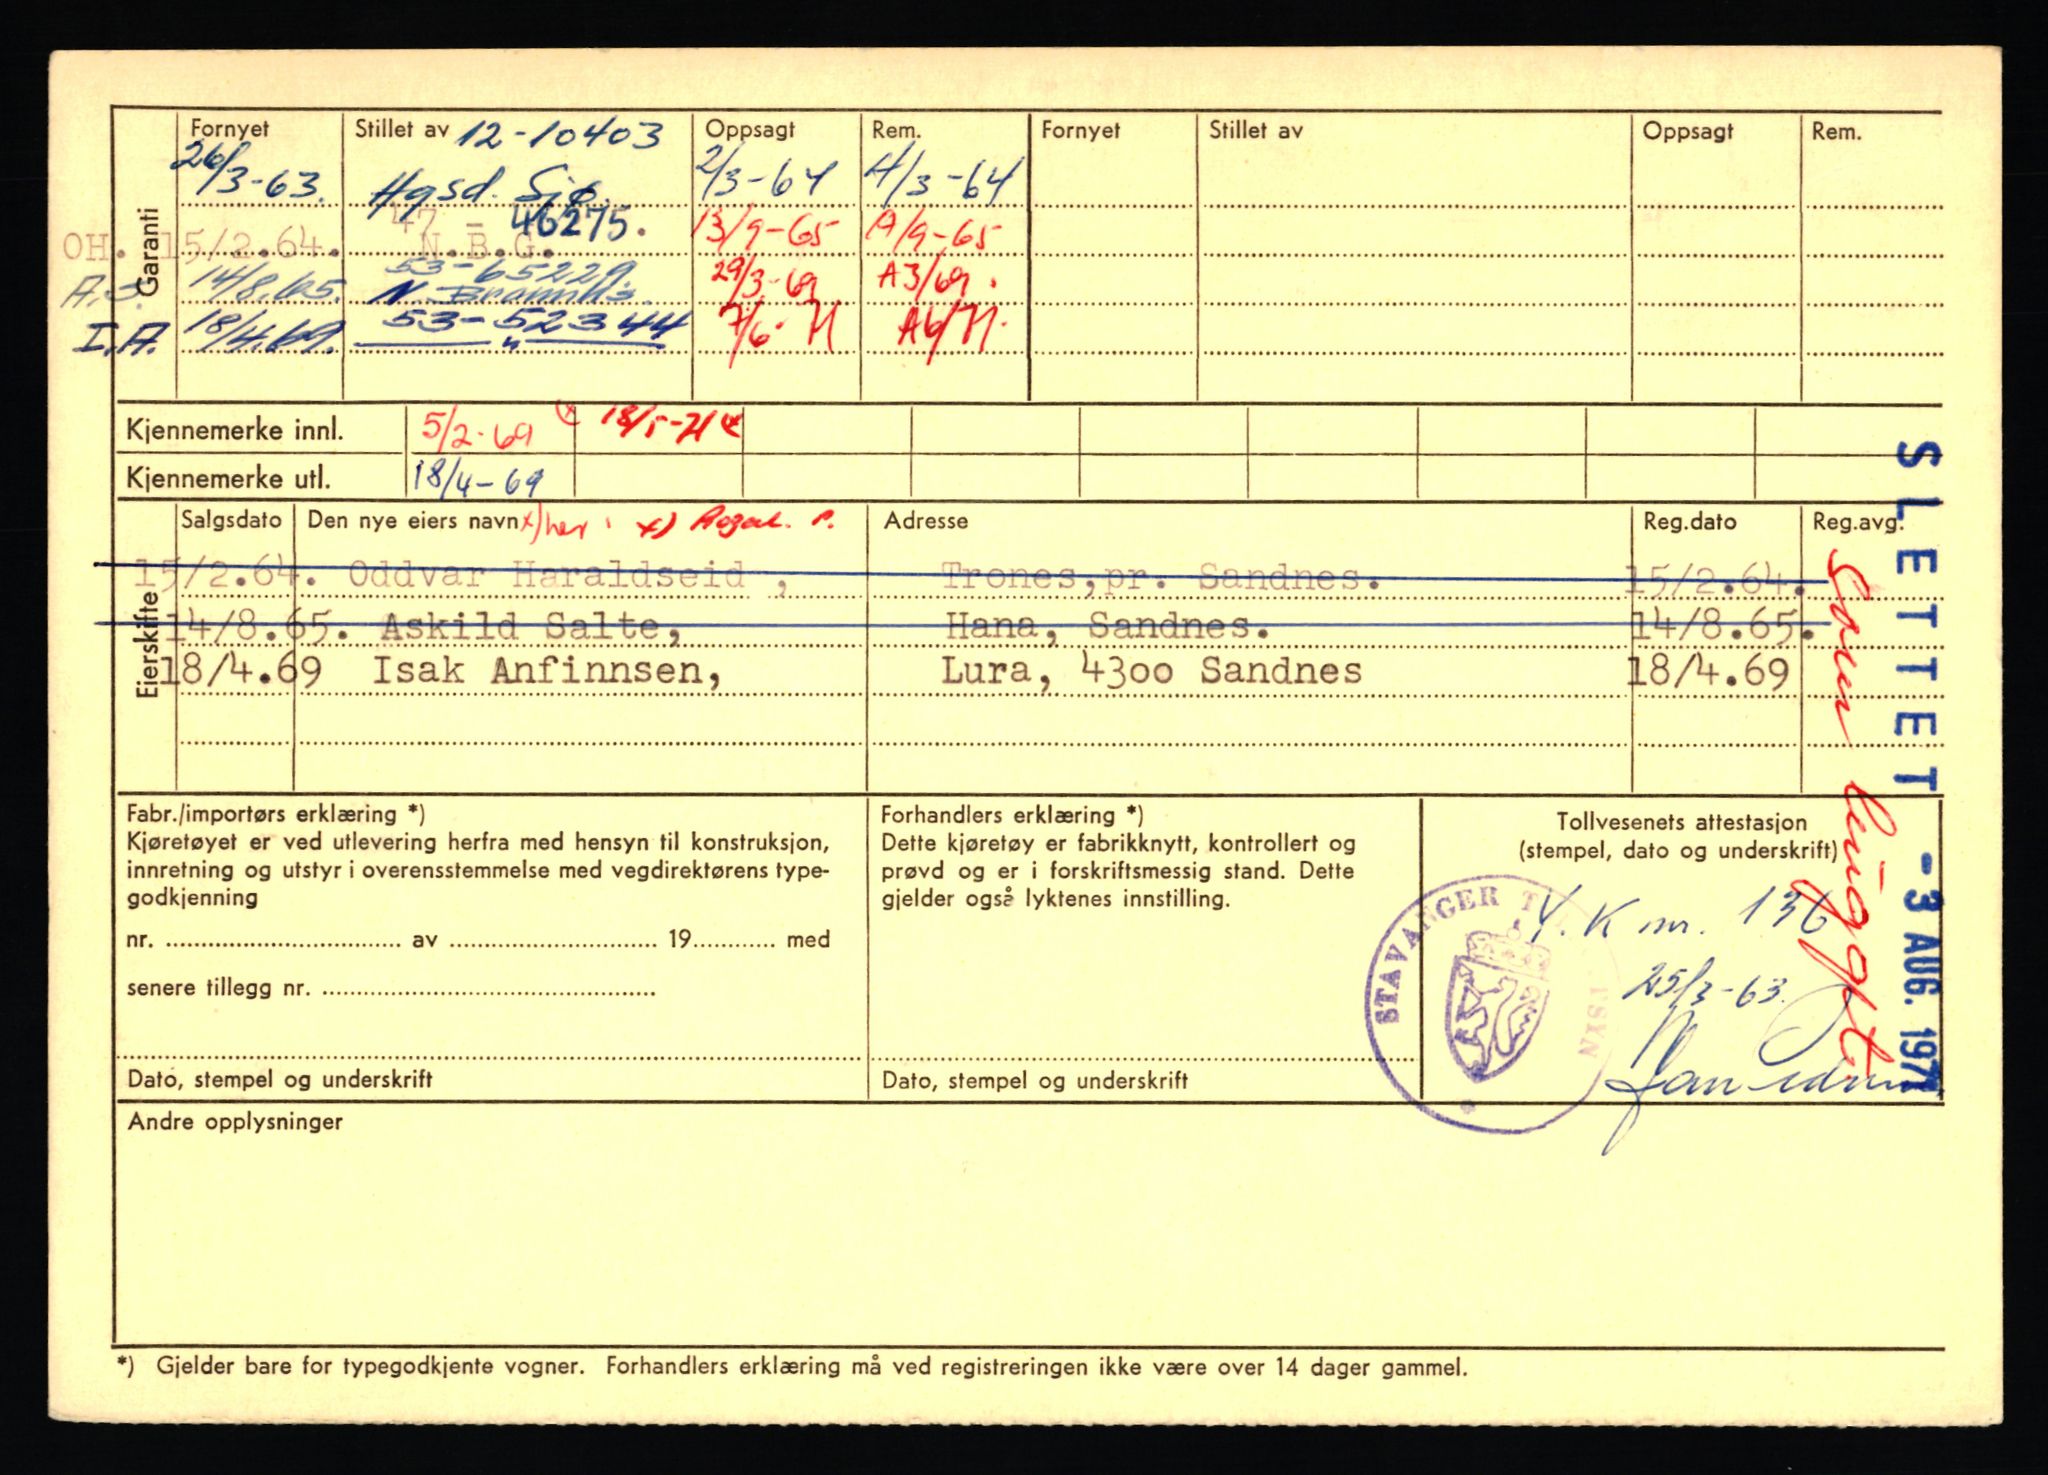 Garanti
Fornyet Stillet av 12-10403 Oppsagt Rem. Fornyet Stillet av Oppsagt Rem.
26/3-63. Hgsd. Sjø. 2/3-64 4/3-64
OH. 15/2.64. 47 - 46275. N.B.G. 13/9-65 A/9-65
A.S. 14/8.65. 53-65229. 29/3-69 A3/69.
I.A. 18/4.69. 53-52344 7/6-71 A6/71.
Kjennemerke innl. 5/2-69 18/5-71
Kjennemerke utl. 18/4-69
Eierskifte
Salgsdato Den nye eiers navn Adresse Reg.dato Reg.avg.
15/2.64. Oddvar Haraldseid, Trones,pr. Sandnes. 15/2.64.
14/8.65. Askild Salte, Hana, Sandnes. 14/8.65.
18/4.69 Isak Anfinnsen, Lura, 4300 Sandnes 18/4.69
SLETTET
- 3 AUG. 1971
Som
Fabr./importørs erklæring *)
Kjøretøyet er ved utlevering herfra med hensyn til konstruksjon,
innretning og utstyr i overensstemmelse med vegdirektørens type-
godkjenning
nr. av 19 med
senere tillegg nr.
Dato, stempel og underskrift
Forhandlers erklæring *)
Dette kjøretøy er fabrikknytt, kontrollert og
prøvd og er i forskriftsmessig stand. Dette
gjelder også lyktenes innstilling.
Dato, stempel og underskrift
Tollvesenets attestasjon
(stempel, dato og underskrift)
STAVANGER
V.K nr. 136
25/3-63.
Andre opplysninger
*) Gjelder bare for typegodkjente vogner. Forhandlers erklæring må ved registreringen ikke være over 14 dager gammel.